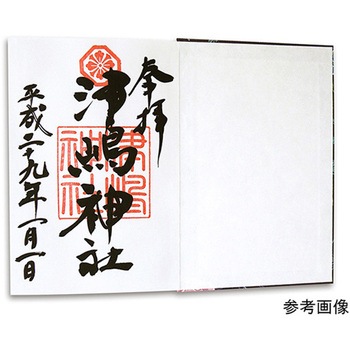 奉拝
津嶋神社
津嶋
神社
平成二十九年一月一日
参考画像